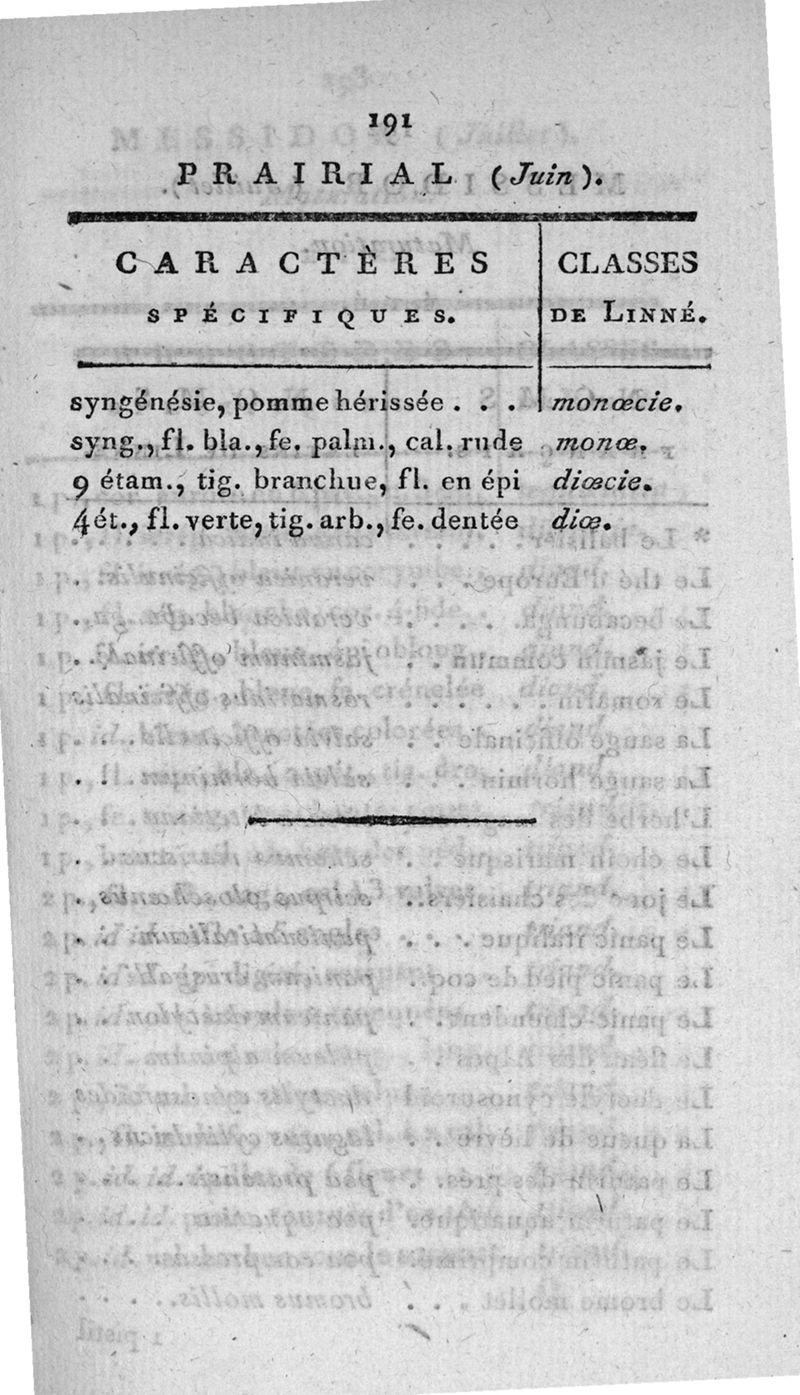 191
PRAIRIAL (Juin).
CARACTÈRES CLASSES
SPÉCIFIQUES. DE LINNÉ.
syngénésie, pomme hérissée . . . monœcie.
syng., fl. bla., fe. palm., cal. rude monœ.
9 étam., tig. branchue, fl. en épi diœcie.
4 ét., fl. verte, tig. arb., fe. dentée diœ.